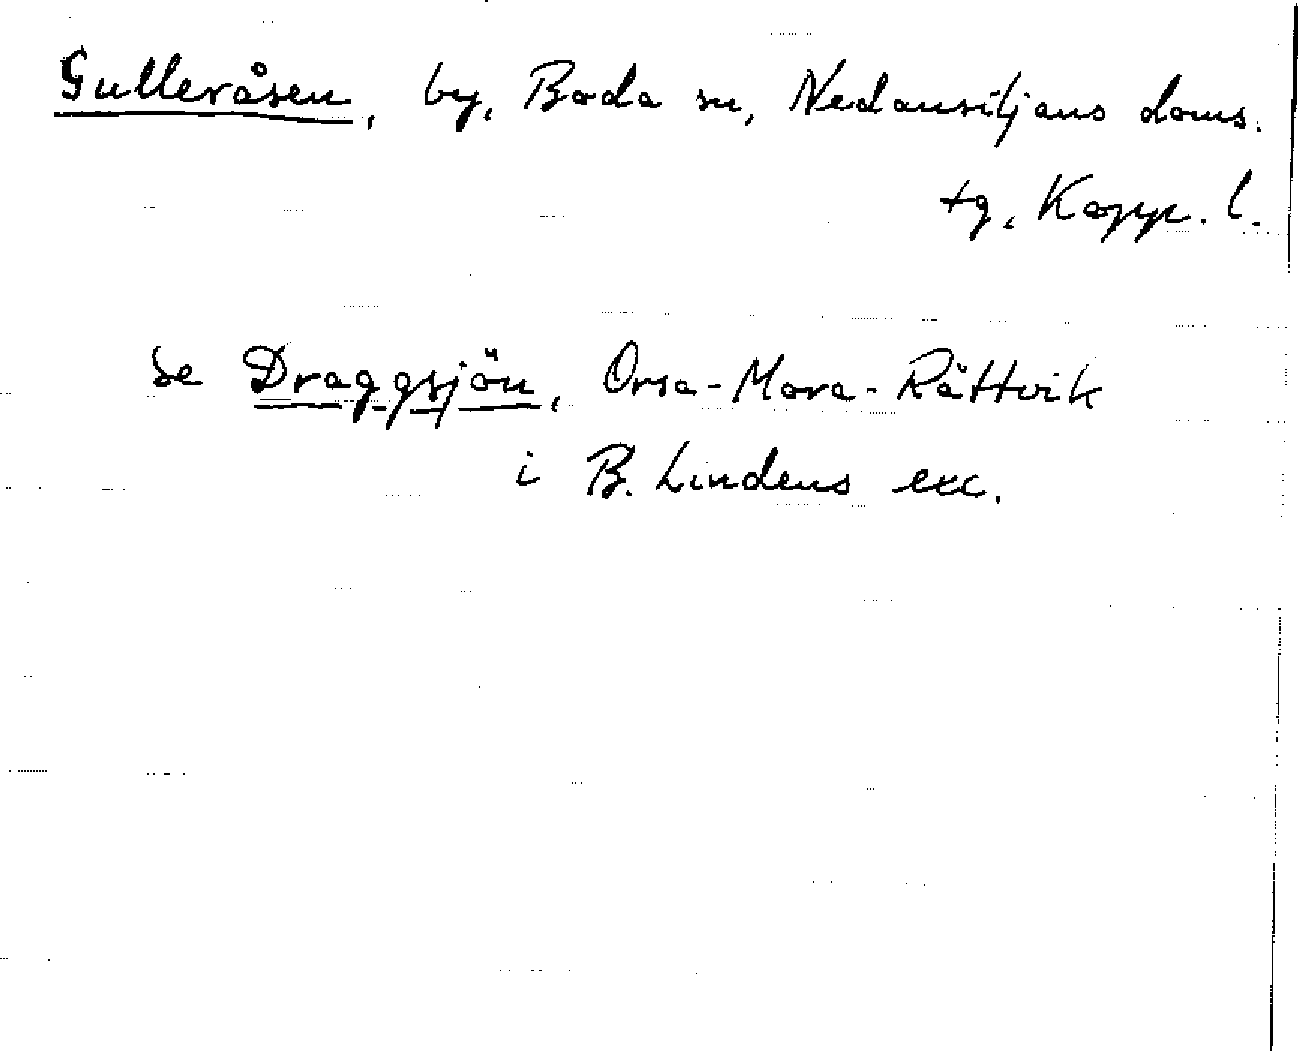 Gulleråsen, by, Boda sn, Nedansiljans doms.
tg, Kopp. l.
se Draggsjön, Orsa-Mora-Rättvik
i B. Lindens exc.